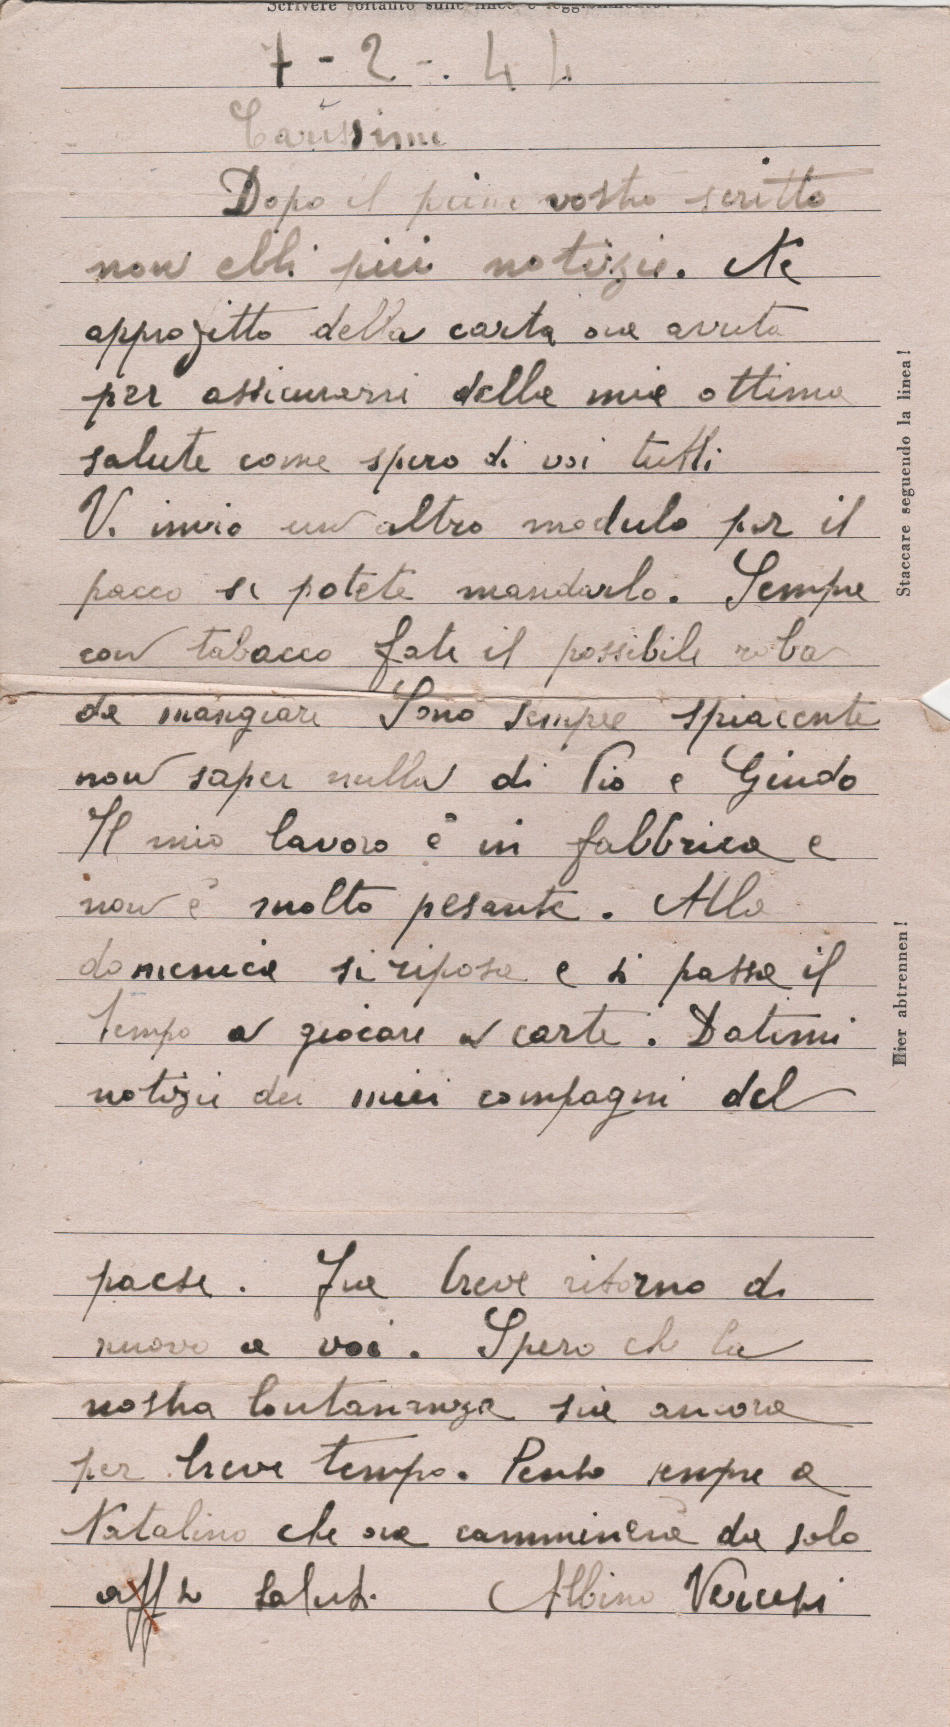 Scrivere soltanto sulle linee e leggibilmente!
7-2-.44
Carissimi
Dopo il primo vostro scritto
non ebbi più notizie. Ne
approfitto della carta ora avuta
per assicurarvi della mia ottima
salute come spero di voi tutti
Vi invio un altro modulo per il
pacco se potete mandarlo. Sempre
con tabacco fate il possibile roba
da mangiare Sono sempre spiacente
non saper nulla di Pio e Guido
Il mio lavoro è in fabbrica e
non è molto pesante. Alla
domenica si riposa e si passa il
tempo a giocare a carte. Datemi
notizie dei miei compagni del
paese. Fra breve ritorno di
nuovo a voi. Spero che la
nostra lontananza sia ancora
per breve tempo. Penso sempre a
Natalino che ora camminerà da solo
aff ti saluti. Albino Vercesi
Staccare seguendo la linea!
Hier abtrennen!